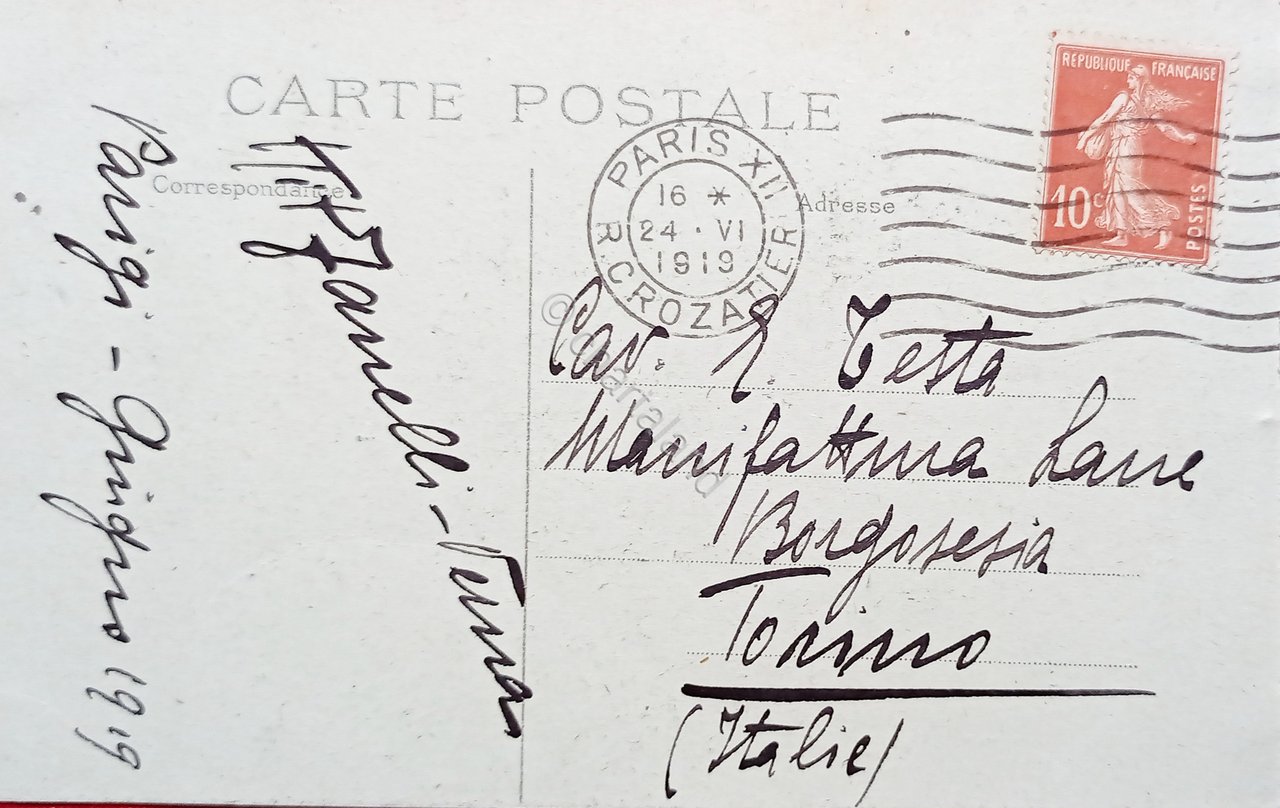 CARTE POSTALE
Correspondance
Adresse
REPUBLIQUE FRANÇAISE
10c
POSTES
PARIS XII
16 *
24 · VI
1919
R. CROZATIER
Parigi - Giugno 1919
Zanelli -
Cav. E. Testa
Manifattura Lane
Borgosesia
Torino
(Italie)
© cartaland